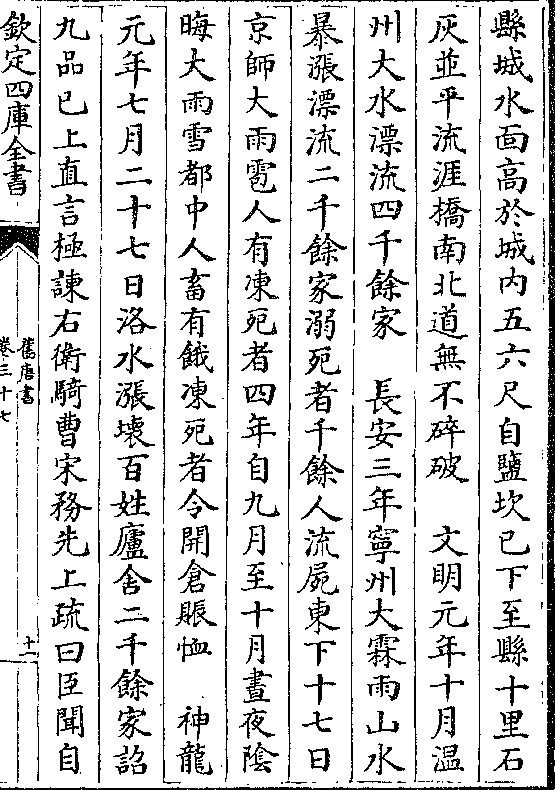 縣城水面高於城内五六尺自鹽坎已下至縣十里石
灰並平流涯橋南北道無不碎破　文明元年十月温
州大水漂流四千餘家　長安三年寧州大霖雨山水
暴漲漂流二千餘家溺死者千餘人流屍東下十七日
京師大雨雹人有凍死者四年自九月至十月晝夜陰
晦大雨雪都中人畜有餓凍死者令開倉賑恤　神龍
元年七月二十七日洛水漲壊百姓廬舍二千餘家詔
九品已上直言極諫右衛騎曹宋務先上疏曰臣聞自
欽定四庫全書
舊唐書
卷三十七
十一